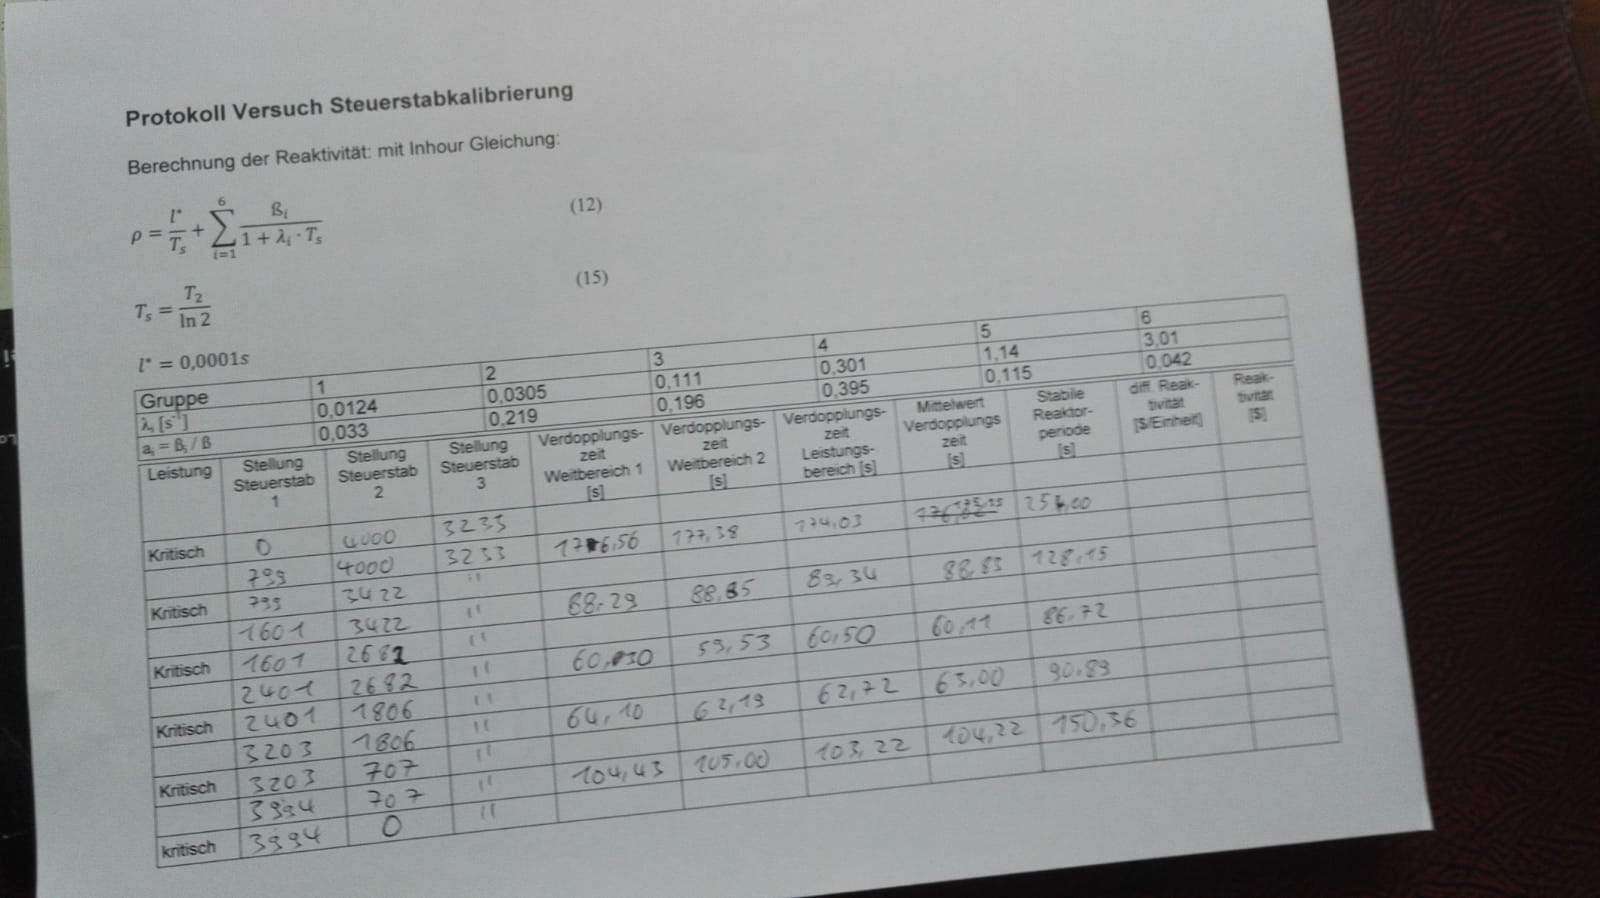 Protokoll Versuch Steuerstabkalibrierung
Berechnung der Reaktivität: mit Inhour Gleichung:
ρ = l*/T_s + ∑_{i=1}^{6} ß_i / (1 + λ_i · T_s) (12)
T_s = T_2 / ln 2 (15)
l* = 0,0001s
Gruppe 1 2 3 4 5 6
λ_i [s⁻¹] 0,0124 0,0305 0,111 0,301 1,14 3,01
a_i = ß_i / ß 0,033 0,219 0,196 0,395 0,115 0,042
Leistung | Stellung Steuerstab 1 | Stellung Steuerstab 2 | Stellung Steuerstab 3 | Verdopplungs-zeit Weitbereich 1 [s] | Verdopplungs-zeit Weitbereich 2 [s] | Verdopplungs-zeit Leistungs-bereich [s] | Mittelwert Verdopplungs zeit [s] | Stabile Reaktor-periode [s] | diff. Reak-tivität [$/Einheit] | Reak-tivität [$]
Kritisch 0 4000 3235
799 4000 3233 176,56 177,38 174,03
Kritisch 799 3422 "
1601 3422 " 88,29 88,85 89,34 88,83 128,15
Kritisch 1601 2682 "
2401 2682 " 60,30 59,53 60,50 60,11 86,72
Kritisch 2401 1806 "
3203 1806 " 64,10 62,19 62,72 63,00 90,89
Kritisch 3203 707 "
3994 707 " 104,43 105,00 103,22 104,22 150,36
kritisch 3994 0 "